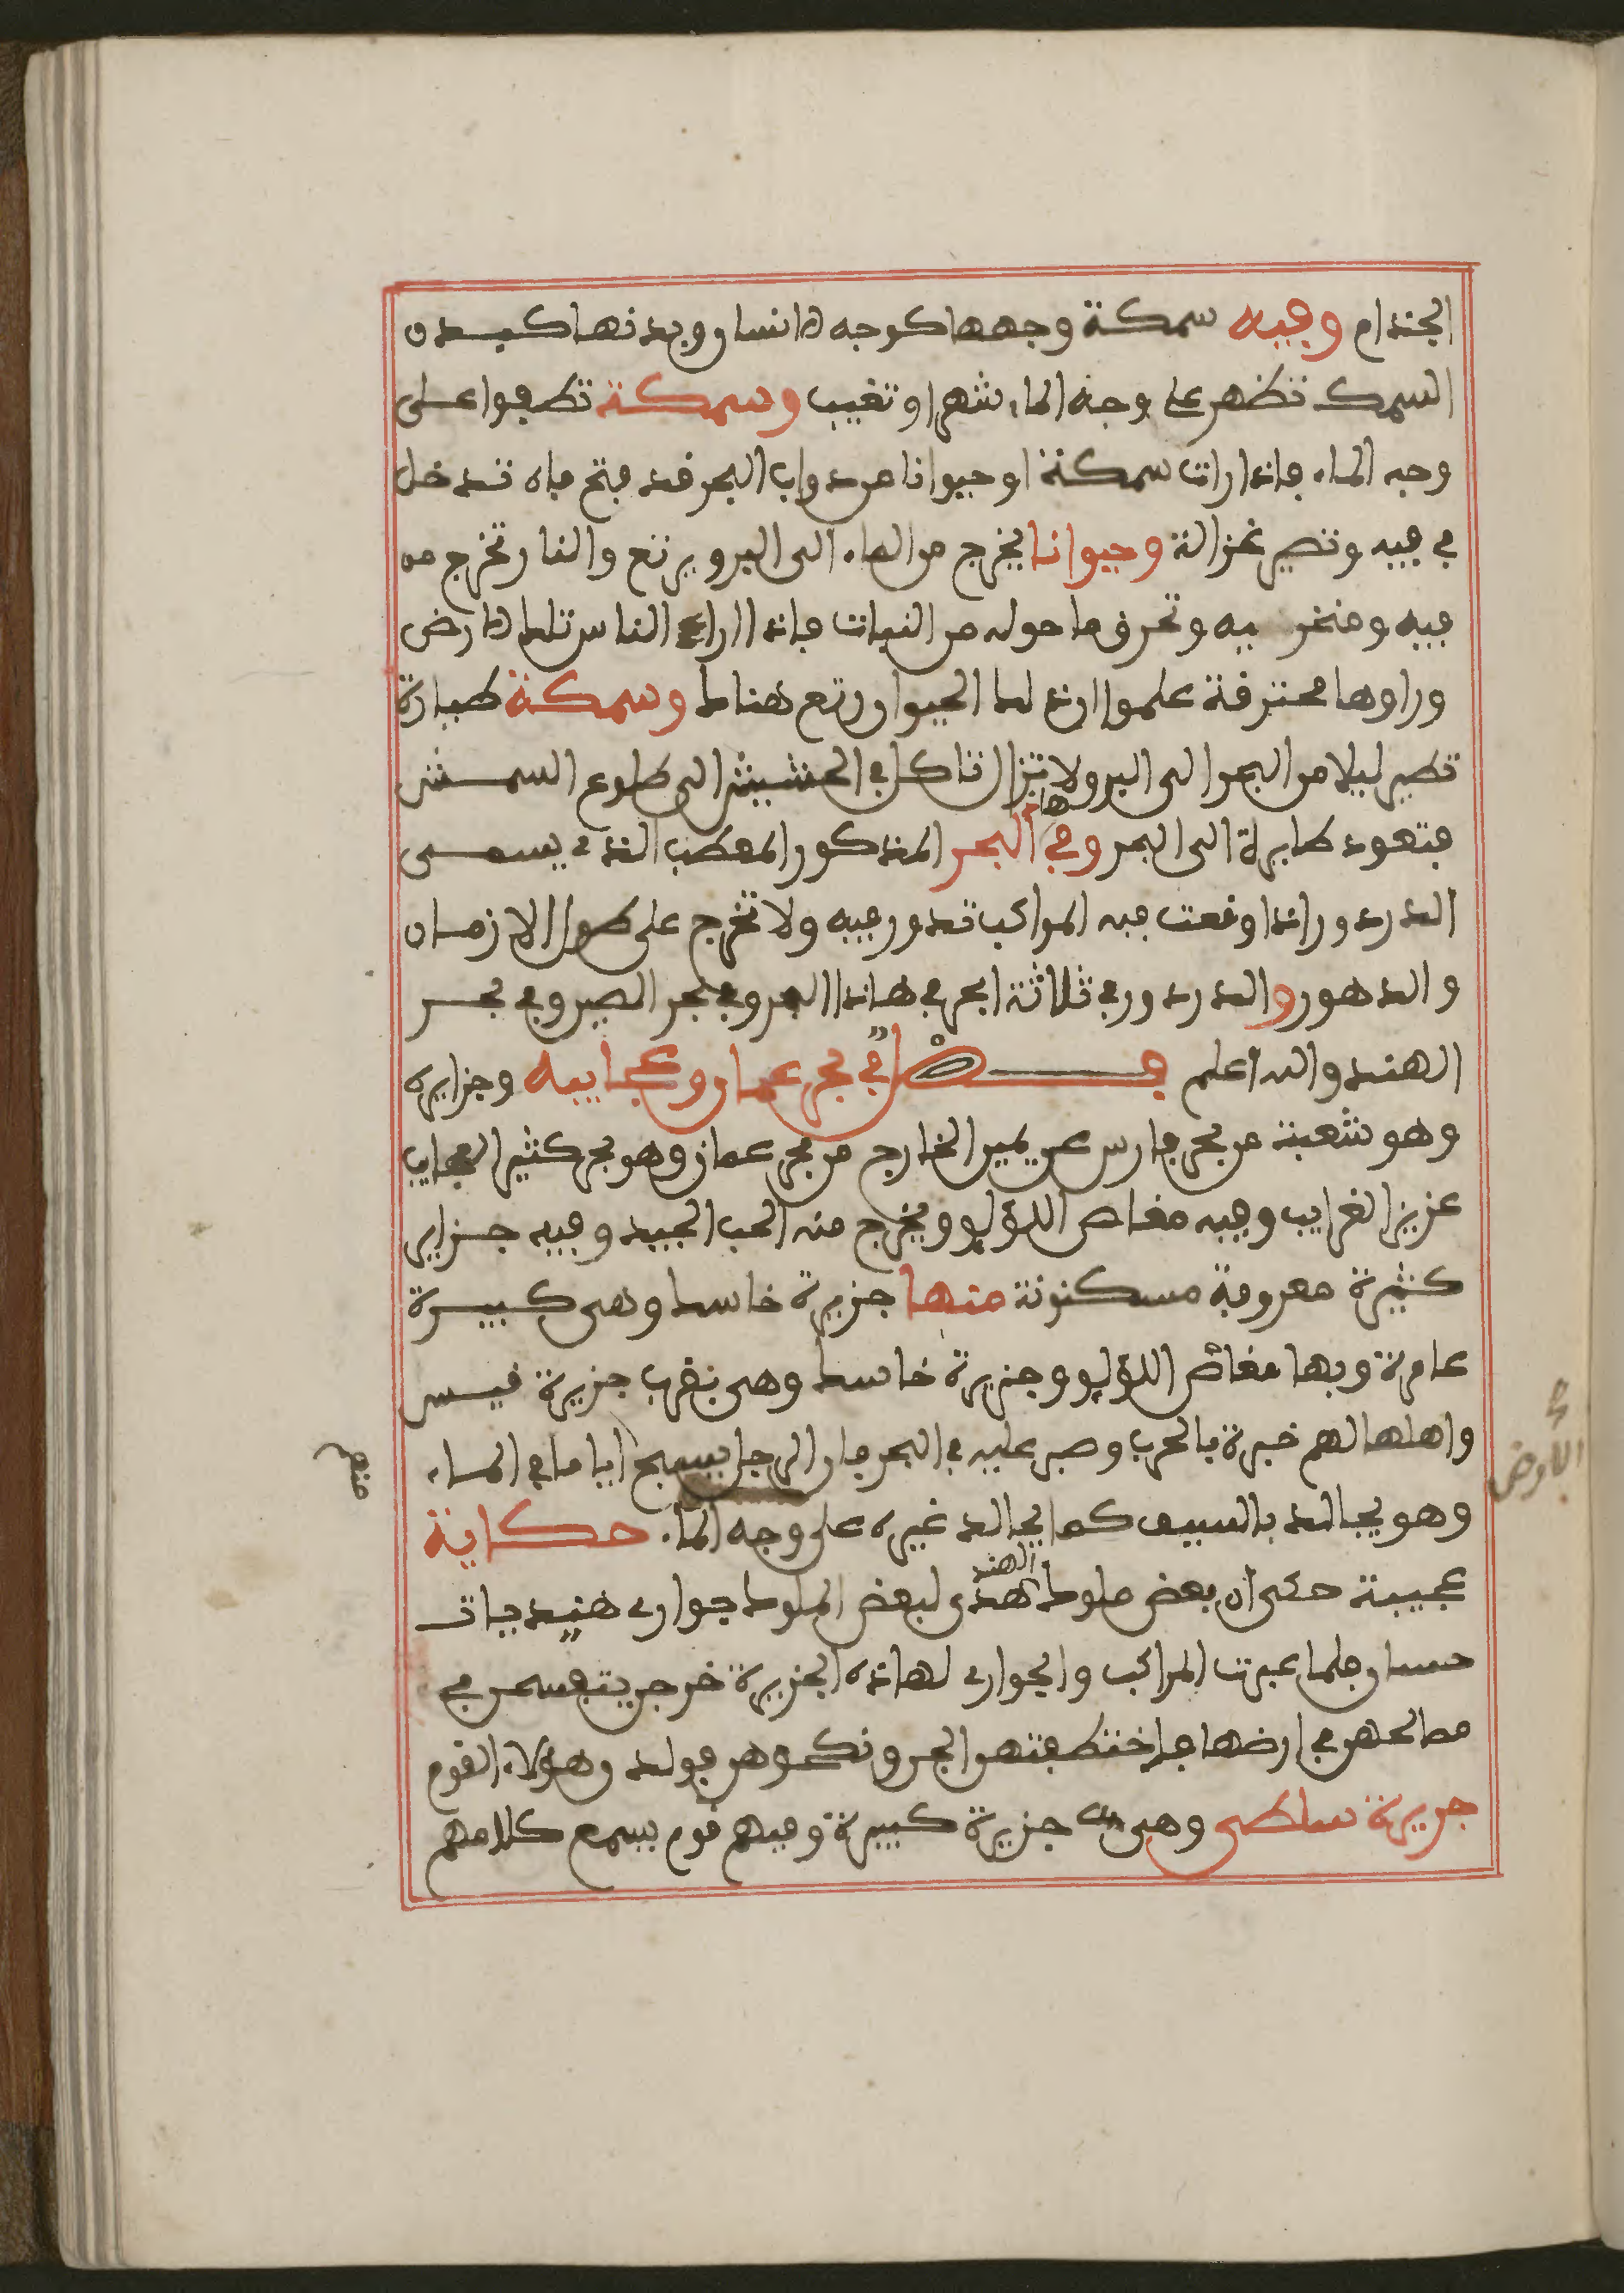 الجذام وفيه سمكة وجهها كوجه الانسان وبدنها كبدن
السمك تظهر على وجه الماء شهرا وتغيب وسمكة تطفوا على
وجه الماء فاذا رات سمكة او حيوانا من دواب البحر قد فتح فاه تدخل
في فيه وتصير غزالة وحيوانا يخرج من الماء الى البر ويرتع والنار تخرج من
فيه ومنخريه وتحرق ما حوله من النبات فاذا راى الناس تلك الارض
وراوها محترقة علموا ان ذلك الحيوان رتع هناك وسمكة طيارة
تطير ليلا من البحر الى البر ولا تزال تاكل في الحشيش الى طلوع الشمس
فتعود طايرة الى البحر وفي هاذا البحر المذكور المعطب الذي يسمى
الدردور اذا وقعت فيه المواكب تدور فيه ولا تخرج على طول الازمان
والدهور والدردور في ثلاثة ابحر في هاذا البحر وفي بحر الصين وفي بحر
الهند والله اعلم فصل في بحر عمان وعجايبه وجزايره
وهو شعبة من بحر فارس عن يمين الخارج من بحر عمان وهو بحر كثير العجايب
عزيز الغرايب وفيه مغاص اللؤلؤ ويخرج منه الحب الجيد وفيه جزاير
كثيرة معروفة مسكنونة منها جزيرة خاسك وهي كبيرة
عامرة وبها مغاص اللؤلؤ وجزيرة خاسك وهي بقرب جزيرة قيس
واهلها لهم خبرة بالحرب وصبر عليه في البحر فان الرجل يسبح اياما في الماء
وهو يجالد بالسيف كما يجالد غيره على وجه الماء حكاية
عجيبة حكى ان بعض ملوك الهند اهدى لبعض الملوك جواري هنديات
حسان فلما عبرت المراكب والجواري لهاذه الجزيرة خرجن يتفسحن في
مصالحهن في ارضها فاختطفتهن الجن ونكحوهن فولد وهؤلاء القوم
جزيرة سلطى وهي جزيرة كبيرة وفيهم قوم يسمع كلامهم
منهم